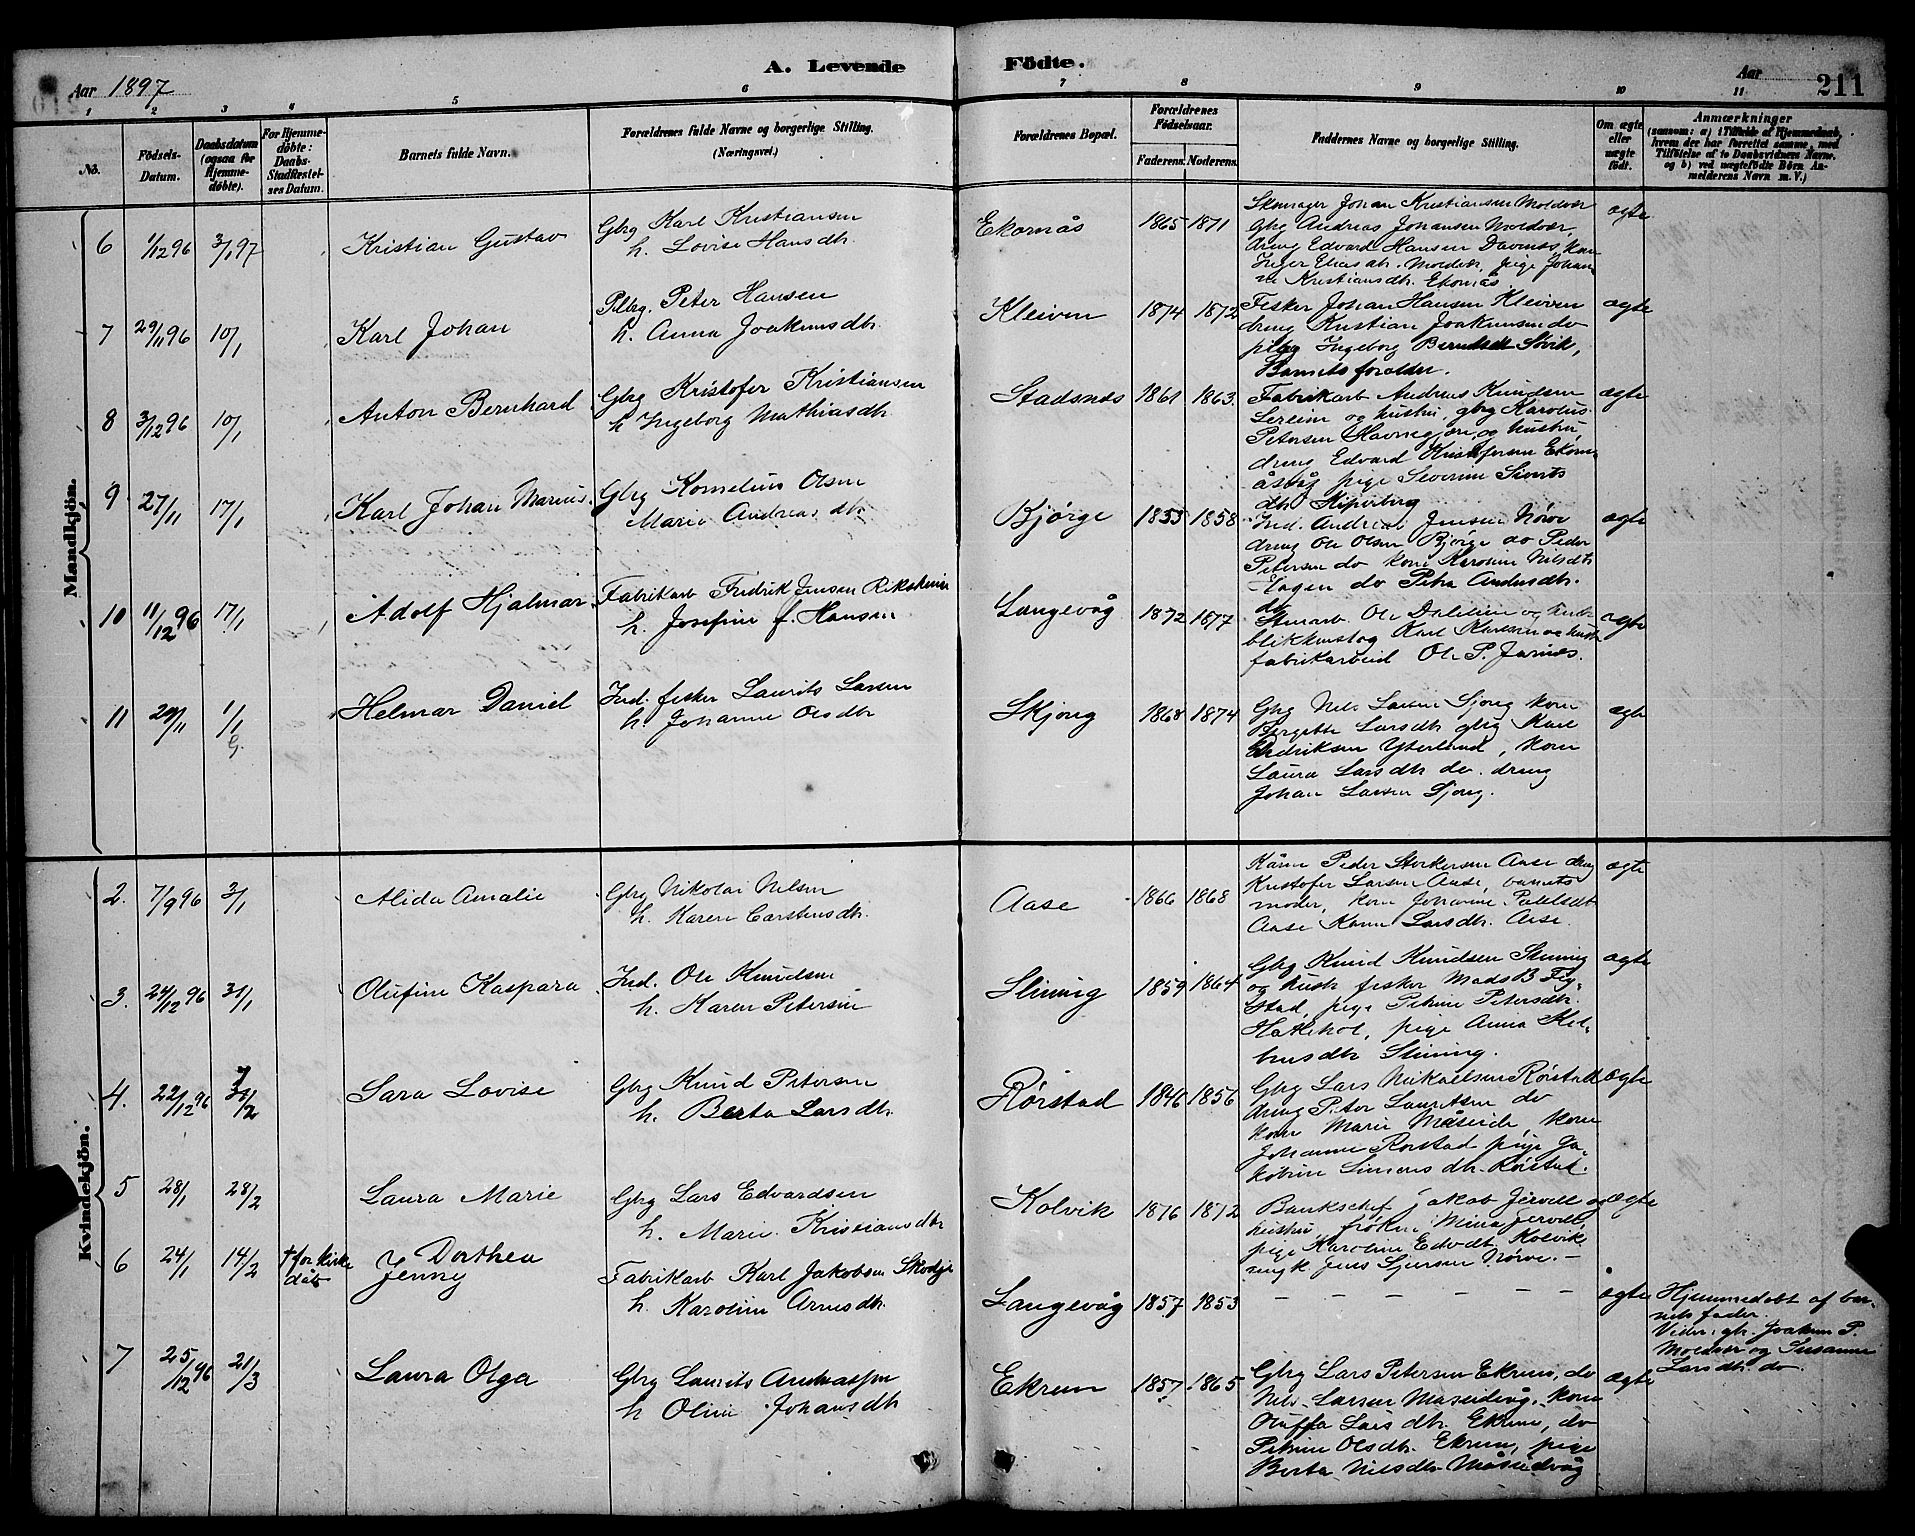 Aar 1897
A. Levende Födte.
Aar
211
1 2 3 4 5 6 7 8 9 10 11
No.
Födsels-
Datum.
Daabsdatum
(ogsaa for
Hjemme-
döbte).
For Hjemme-
döbte:
Daabs-
Stadfæstel-
ses Datum.
Barnets fulde Navn.
Forældrenes fulde Navne og borgerlige Stilling.
(Næringsvei.)
Forældrenes Bopæl.
Forældrenes
Födselsaar.
Faderens. Moderens.
Faddernes Navne og borgerlige Stilling.
Om ægte
eller
uægte
födt.
Anmærkninger
(saasom: a) i Tilfælde af Hjemmedaab,
hvem der har forrettet samme, med
Tilföielse af to Daabsvidners Navne,
og b) ved uægtefödte Börn An-
melderens Navn m. V.)
Mandkjön.
6 1/12 96 3/1 97 Kristian Gustav
Gbrg Karl Kristiansen
h. Lovise Hansdtr
Ekornås 1865 1871
Johan Kristiansen Moldvær
Gbrg Andreas Johansen Moldvær,
dreng Edvard Hansen
Inger Eliasdtr. Moldvær, pige Johan-
ne Kristiansdtr. Ekornås
ægte
7 29/11 96 10/1 Karl Johan
Peter Hansen
h. Anna Joakimsdtr
Kleiven 1874 1872
Fisker Johan Hansen Kleiven
dreng Kristian Joakimsen do
Ingeborg Berntsdtr Søvik,
Barnets forældre.
ægte
8 3/12 96 10/1 Anton Bernhard
Gbrg Kristofer Kristiansen
h Ingeborg Mathiasdtr
Stadsnes 1861 1863.
Fabrikarb Andreas Knudsen
og hustru, gbrg Karolus
Petersen og hustru,
dreng Edvard Kristofersen Ekorn-
åsvåg pige Severine Siverts
dtr
ægte
9 27/11 17/1 Karl Johan Marius
Gbrg Kornelius Olsen
Marie Andreasdtr
Bjørge 1855 1858
Ind. Andreas Jensen Nørve
dreng Ole Olsen Bjørge do Peder
Petersen do kone Karoline Nilsdtr
Hagen do Petra Andersdtr.
do
ægte
10 11/12 96 17/1 Adolf Hjalmar
Fabrikarb Fredrik Jensen
h. Josefine f. Hansen
Langevåg 1872 1877
Ole
Karl Karlsen og hustr
fabrikarbeid Ole P. Jarnes.
ægte
11 29/11 1/1 G. Helmar Daniel
Ind. fisker Laurits Larsen
h Johanne Olsdtr
Skjong 1868 1874
Gbrg Nils Larsen Sjong kone
Bergitte Larsdtr gbrg Karl
Endriksen Ytterland, kone
Laura Larsdtr do. dreng
Johan Larsen Sjong.
ægte
Kvindekjön.
2. 7/9 96 3/1 Alida Amalie
Gbrg Nikolai Nilsen
h. Karen Carstensdtr.
Aase 1866 1868
Peder Aase dreng
Kristofer Larsen Aase, barnets
moder, kone Johanne
Aase Karen Larsdtr. Aase.
ægte
3. 24/12 96 31/1 Olufine Kaspara
Ind. Ole Knudsen
h. Karen Petersen
Slinning 1859 1864
Gbrg Knud Knudsen Slinning
og hustr fisker Mads B
pige Petrine Petersdtr.
pige Anna
Slinning.
ægte
4. 22/12 96 7/2 Sara Lovise
Gbrg Knud Petersen
h. Berta Larsdtr.
Rørstad 1846 1856
Gbrg Lars Mikaelsen Rørstad
dreng Peter Lauritsen do
kone Marie Måseide, kone
Johanne Rørstad pige Ja-
kobine Simonsdtr. Rørstad.
ægte
5 28/1 28/2 Laura Marie
Gbrg Lars Edvardsen
h. Marie Kristiansdtr
Kolvik 1876 1872
Bankschef Jakob Jervell og
hustru, frøken Mina Jervell,
pige Karoline Edvdt. Kolvik
ungk. Jens Nørve. –
ægte
6 24/1 14/2 † før kirke
dåb
Jenny Dorthea
Fabrikarb Karl Jakobsen Skodje
h. Karoline Arnesdtr.
Langevåg 1857 1853
– – – – – –
ægte
Hjemmedøbt af bar-
nets fader.
Vidner: gbr. Joakim P.
Moldvær og Susanne
Larsdtr. do.
7 25/12 96 21/3 Laura Olga
Gbrg Laurits Andreassen
h Oline Johansdtr
Ekrem 1857 1865
Gbrg Lars Petersen Ekrem, do
Nils Larsen Maseidvåg, kone
Oluffa Larsdtr. Ekrem, do
Petrine Olsdtr. Ekrem, pige
Berta Nilsdtr Måseidvåg
ægte